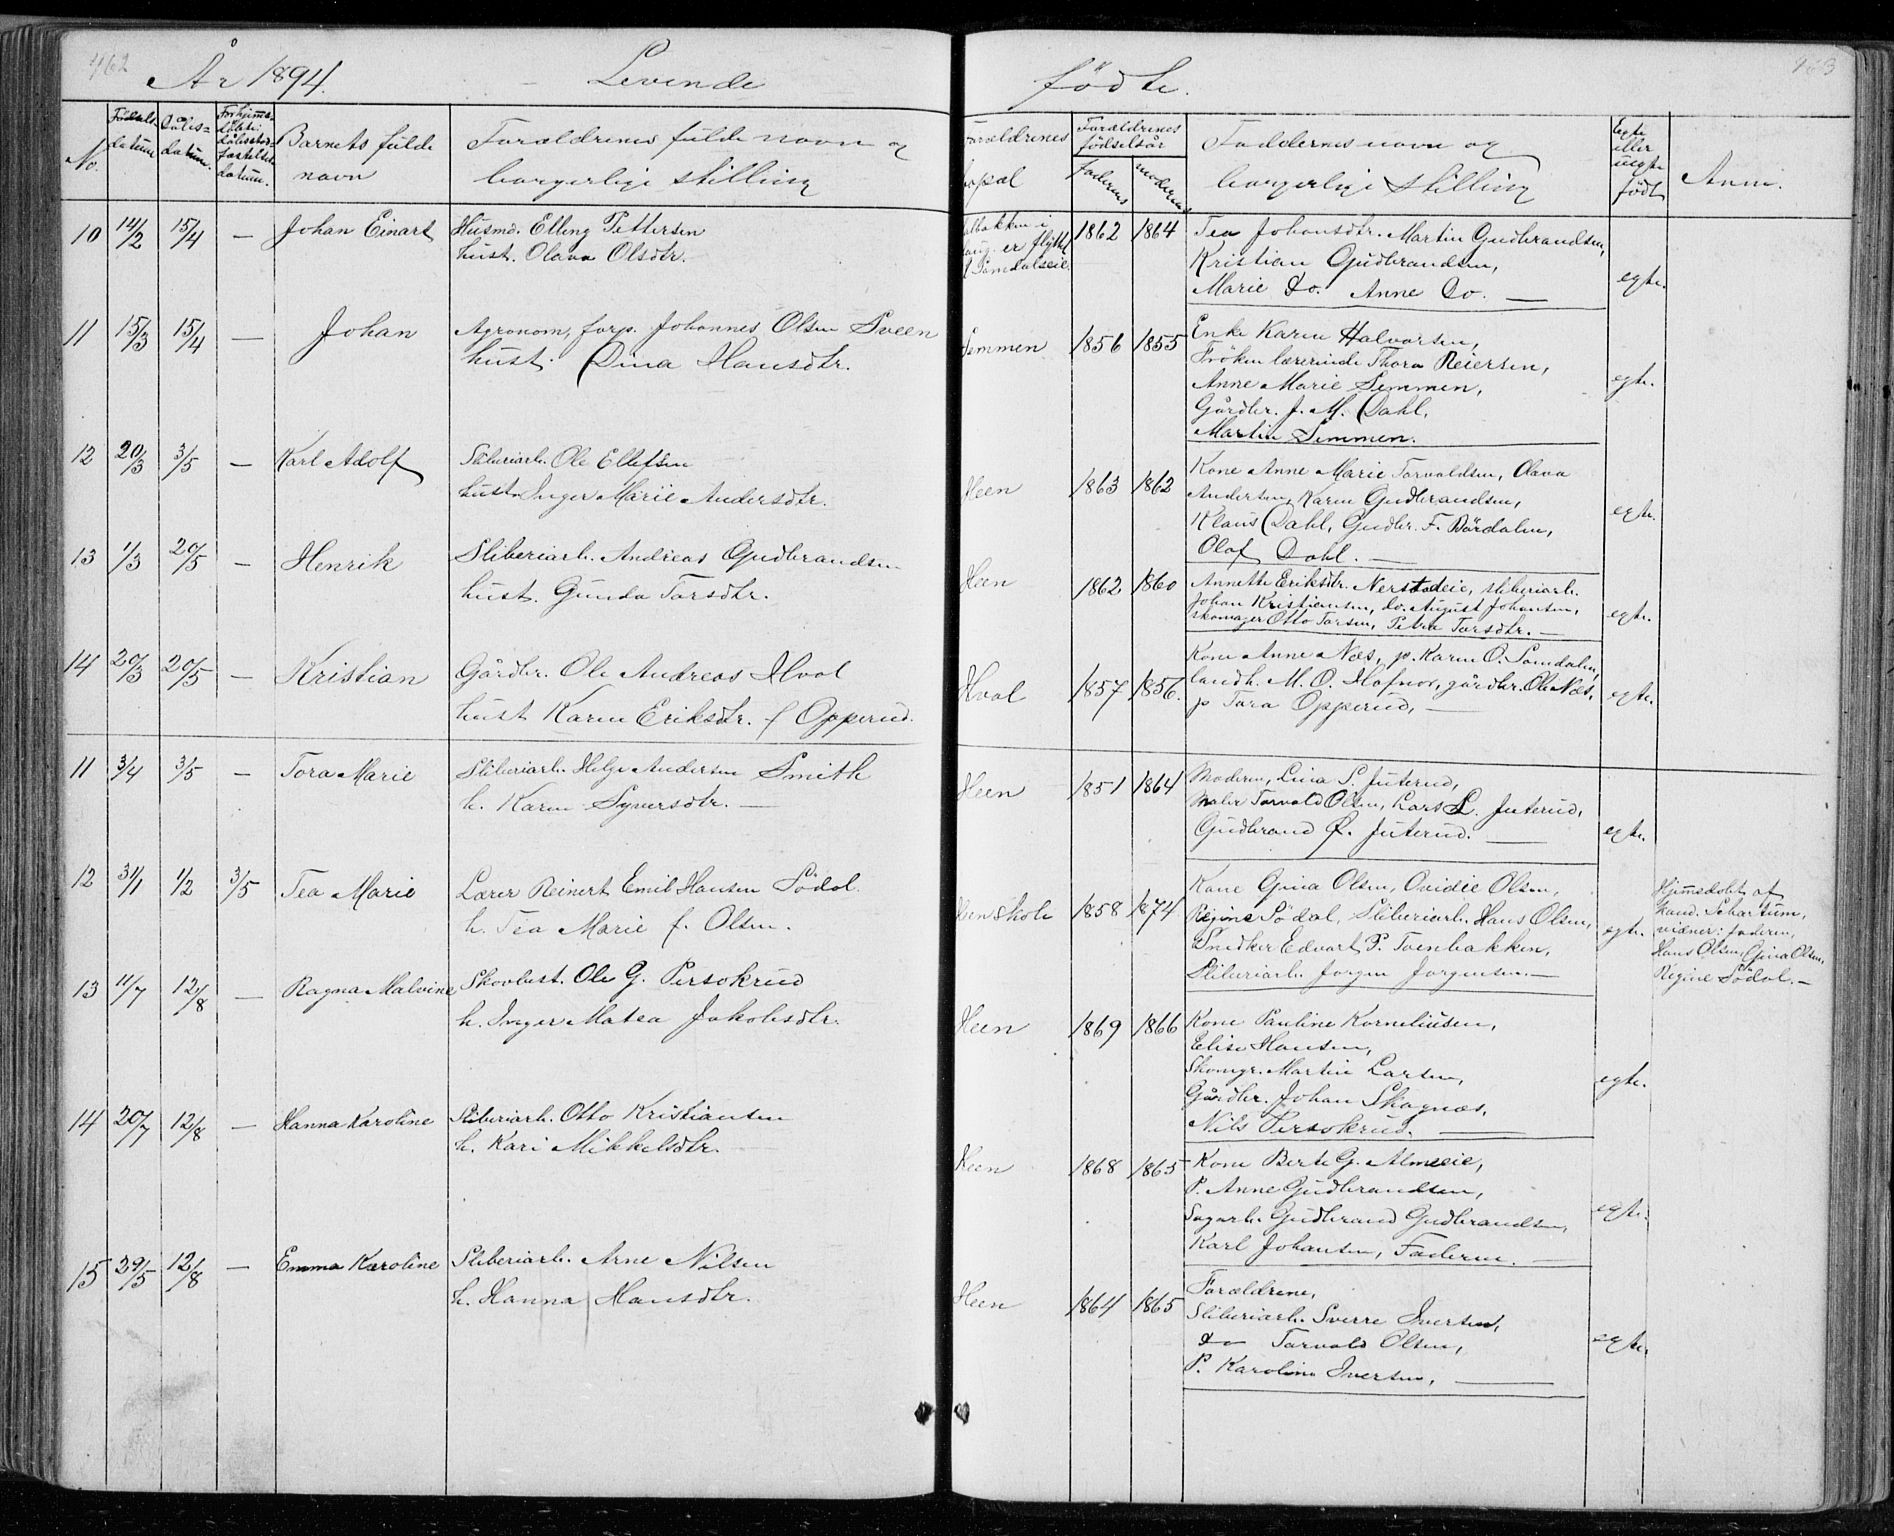 462
År 1894. Levende
No. Fødsels-datum Dåbs-datum. Barnets fulde navn Forældrenes fulde navn og borgerlige stilling
10 14/2 15/4 — Johan Einart Husmd. Elling Pettersen
hust. Olava Olsdtr.
11 15/3 15/4 — Johan Agronom, forp. Johannes Olsen Sveen
hust. Dina Hansdtr.
12 20/3 3/5 — Karl Adolf Sliberiarb. Ole Ellefsen
hust. Inger Marie Andersdtr.
13 1/3 20/5 — Henrik Sliberiarb. Andreas Gudbrandsen
hust. Gunda Torsdtr.
14 20/3 20/5 — Kristian Gårdbr. Ole Andreas Hval
hust Karen Eriksdtr. f Opperud.
11 3/4 3/5 — Tora Marie Sliberiarb. Helge Andersen Smith
h. Karen Syversdtr. —
12 31/1 1/2 3/5 Tea Marie Lærer Reinert Emil Hansen Södol.
h. Tea Marie f. Olsen.
13 11/7 12/8 — Ragna Malvine Skovbest. Ole G. Persokrud
h. Inger Matea Jakobsdtr.
14 20/7 12/8 — Hanna Karoline Sliberiarb. Otto Kristiansen
h. Kari Mikkelsdtr. —
15 29/5 12/8 — Emma Karoline Sliberiarb. Arne Nilsen
h. Hanna Hansdtr.
463
födte.
Forældrenes bopæl Forældrenes födselsår Faderens moderens Faddernes navn og borgerlige stilling Egte eller uegte födt Anm.
er flyttet 1862 1864 Tea Johansdtr. Martin Gudbrandsen,
Kristian Gudbrandsen,
Marie Do. Anne Do. — egte.
Semmen 1856 1855 Enke Karen Halvorsen,
Fröken lærerinde Thora Reiersen,
Anne Marie Semmen, egte.
Gårdbr. J. M. Dahl,
Martin Semmen.
Heen 1863 1862 Kone Anne Marie Torvaldsen, Olava
Andersen, Karen Gudbrandsen, egte.
Klaus Dahl, Gudbr. F. Bårdalen,
Olaf Dahl. —
Heen 1862 1860 Annette Eriksdtr. sliberiarb.
Johan Kristiansen, do. August Johansen, egte.
skomager Otto Torsen, Petra Torsdtr. —
Hval 1857 1856. Kone Anne Næs, p. Karen O. Somdalen,
landh. M. O. Hofnor, gårdbr. Ole Næs, egte.
p Tora Opperud, —
Heen 1851 1864 Moderen, Lina S. Juterud,
Maler Torvald Olsen, Lars L. Juterud,
Gudbrand Juterud. — egte.
Heen skole 1858 1874 Kone Gina Olsen, Ovidie Olsen,
Regine Södol, Sliberiarb. Hans Olsen, egte.
Snedker Edvart P. Toenbakken,
Sliberiarb. Jörgen Jörgensen. —
Hjemmedöbt af
kand. Schartum,
vidner: faderen,
Hans Olsen, Gina Olsen,
Regine Södol. —
Heen 1869 1866 Kone Pauline Korneliusen,
Elise Hansen,
Skomgr. Martin Larsen, egte.
Gårdbr. Johan Skagnæs,
Nils Persokrud. —
Heen 1868 1865 Kone Berte G. Almeeie,
P. Anne Gudbrandsen,
Sagarb. Gudbrand Gudbrandsen, egte.
Karl Johansen, Faderen. —
Heen 1864 1865 Forældrene,
Sliberiarb. Sverre Iversen,
do Torvald Olsen, egte.
P. Karoline Iversen, —